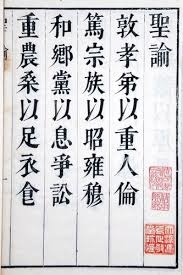 聖諭
敦孝弟以重人倫
篤宗族以昭雍穆
和鄉黨以息爭訟
重農桑以足衣食